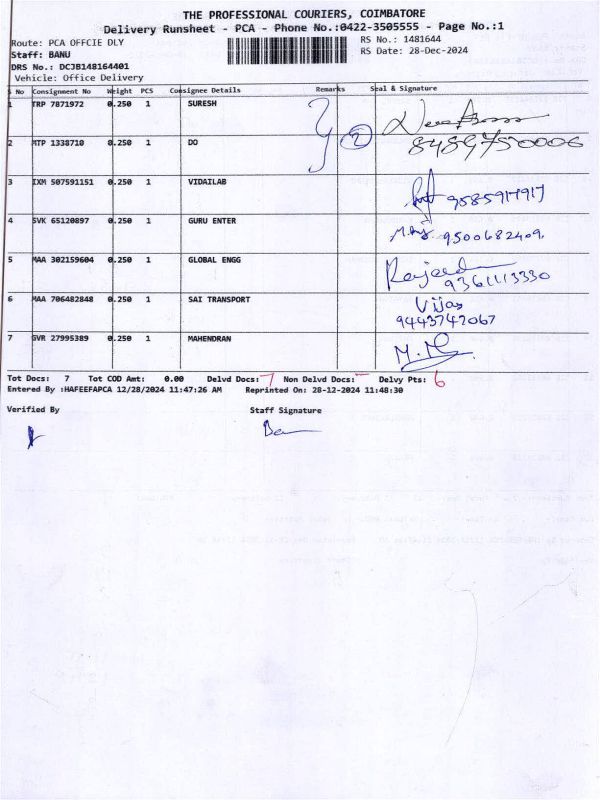 THE PROFESSIONAL COURIERS, COIMBATORE
Delivery Runsheet - PCA - Phone No.:0422-3505555 - Page No.:1
Route: PCA OFFCIE DLY RS No.: 1481644
Staff: BANU RS Date: 28-Dec-2024
DRS No.: DCJB148164401
Vehicle: Office Delivery
S No Consignment No Weight PCS Consignee Details Remarks Seal & Signature
1 TRP 7871972 0.250 1 SURESH
2 MTP 1338710 0.250 1 DO 2 8489750006
3 IXM 507591151 0.250 1 VIDAILAB 9585917917
4 SVK 65120897 0.250 1 GURU ENTER 9500682409
5 MAA 302159604 0.250 1 GLOBAL ENGG 9361113330
6 MAA 706482848 0.250 1 SAI TRANSPORT Vijay
9443747067
7 GVR 27995389 0.250 1 MAHENDRAN
Tot Docs: 7 Tot COD Amt: 0.00 Delvd Docs: 7 Non Delvd Docs: - Delvy Pts: 6
Entered By :HAFEEFAPCA 12/28/2024 11:47:26 AM Reprinted On: 28-12-2024 11:48:30
Verified By Staff Signature